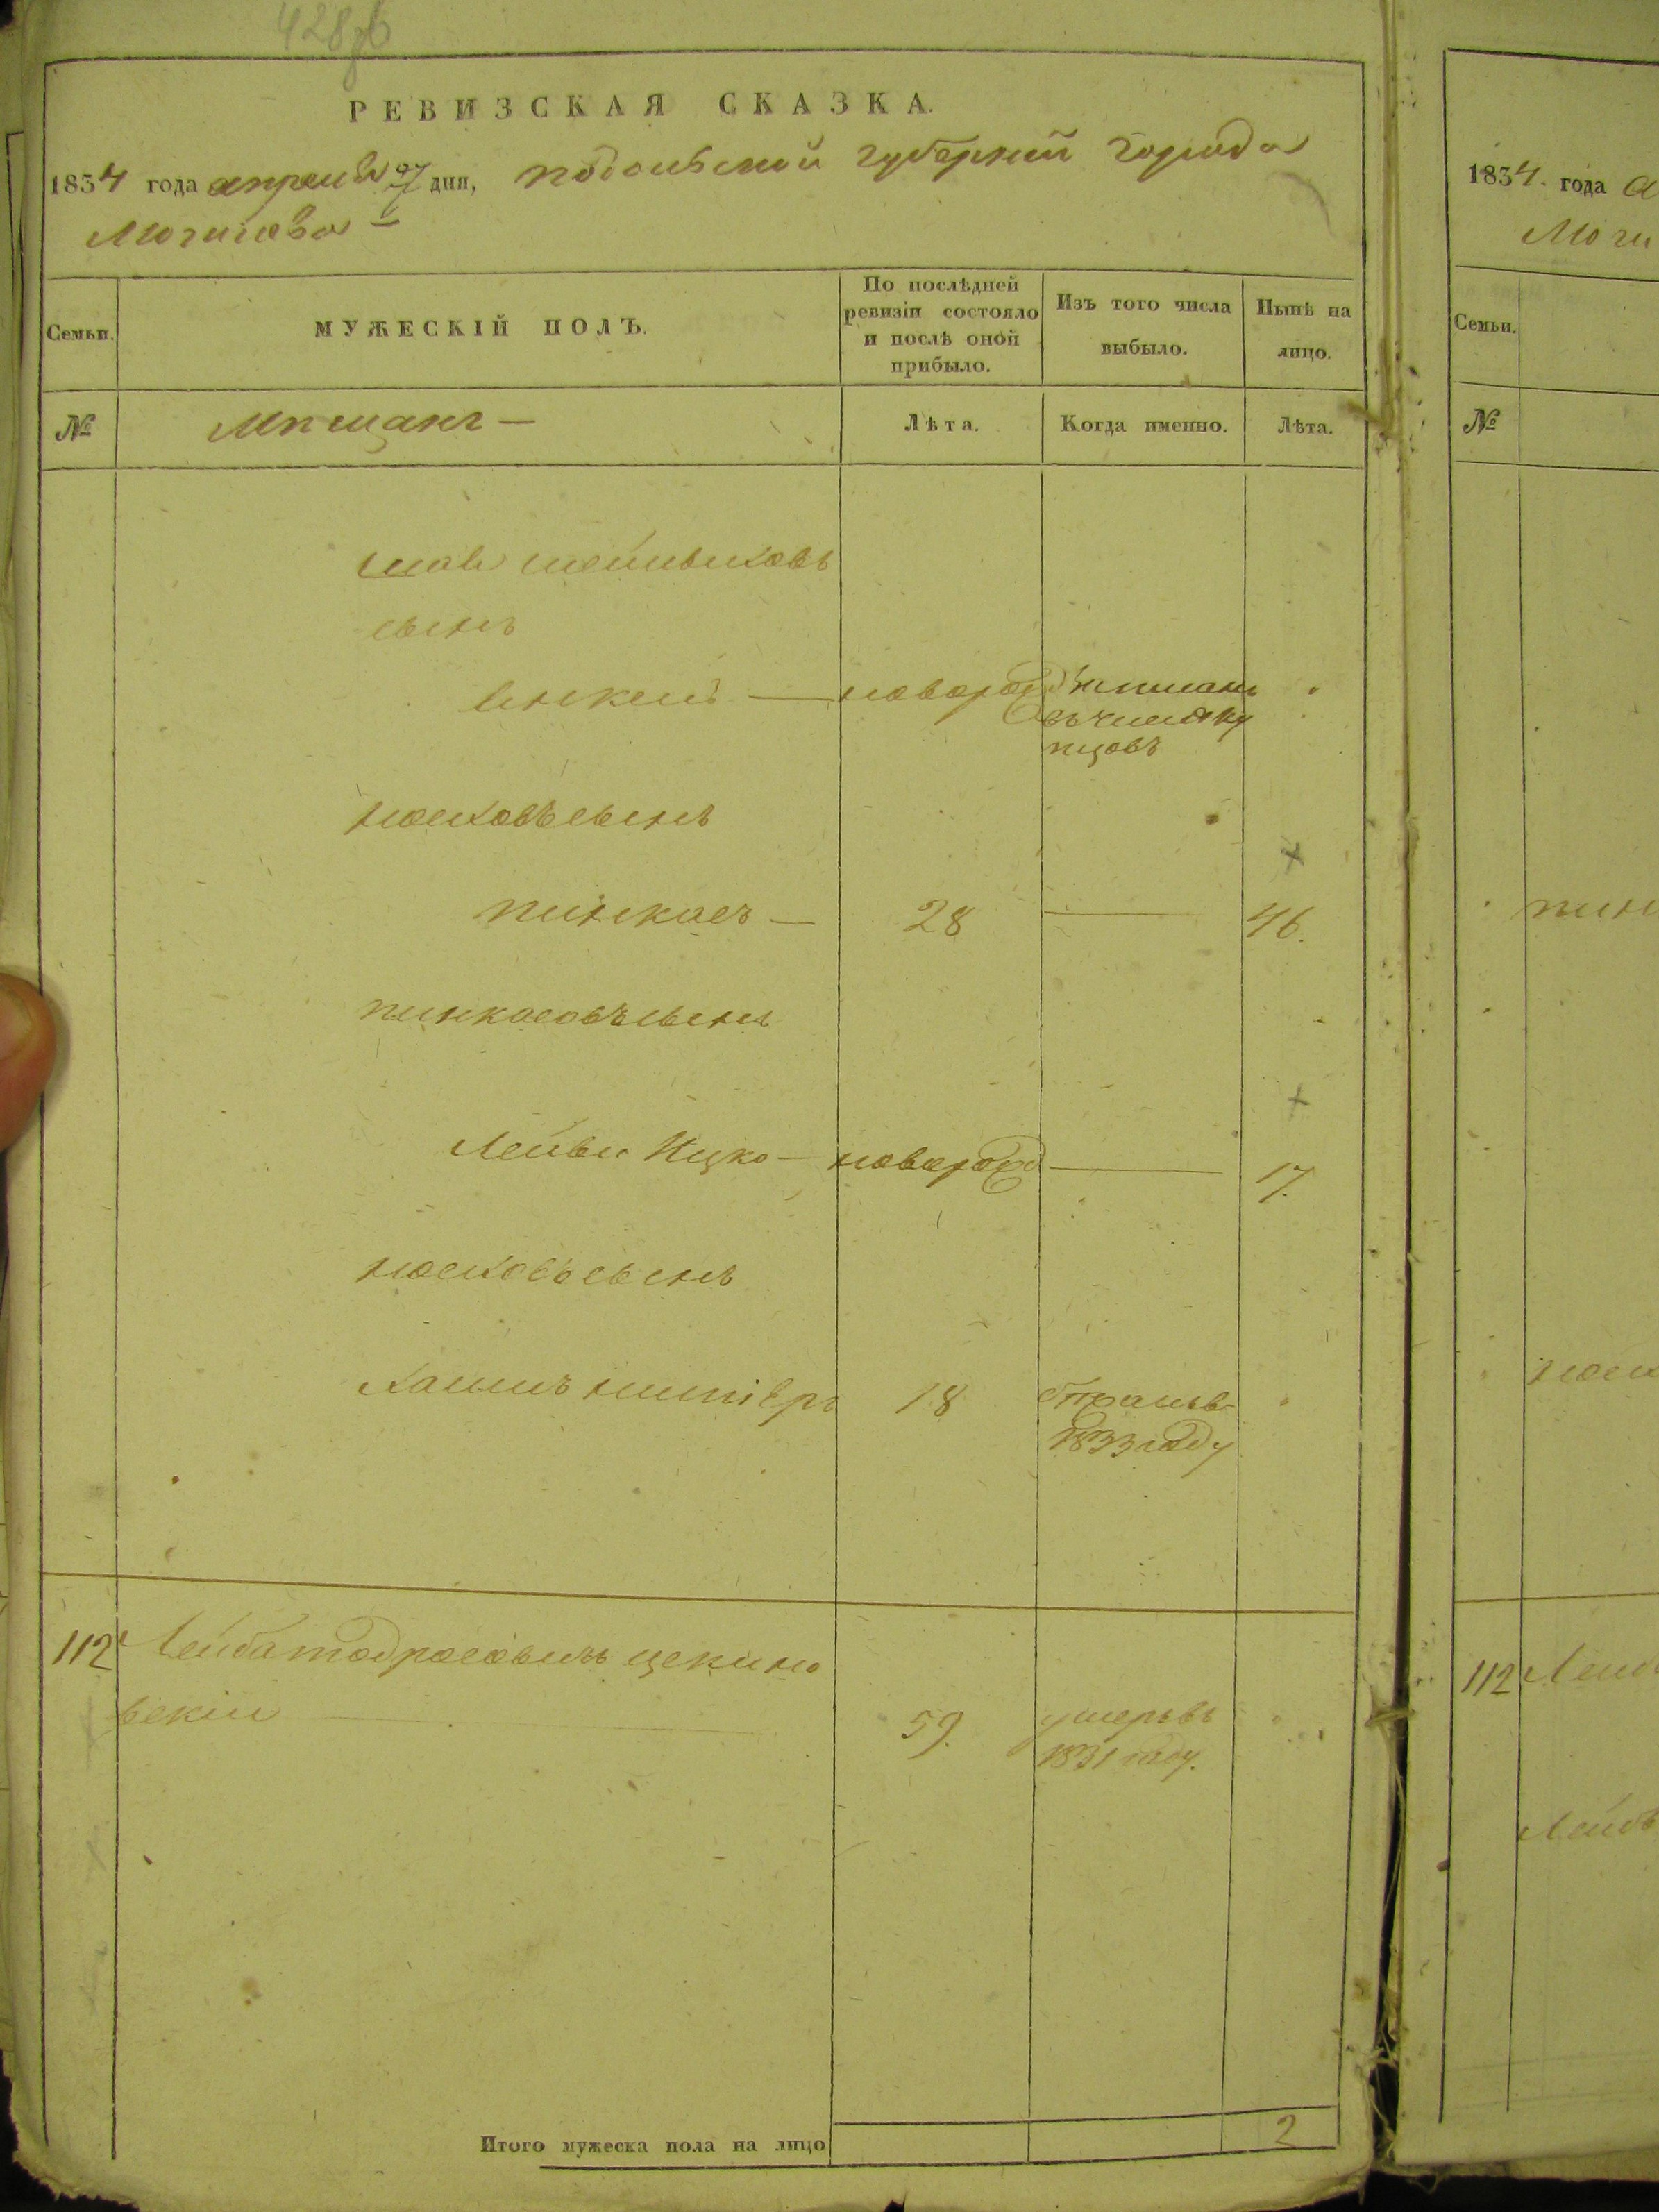 428об
РЕВИЗСКАЯ СКАЗКА.
1834 года апреля 27 дня, подольской губернии города
Могилева
Семьи.
МУЖЕСКІЙ ПОЛЪ.
По послѣдней
ревизіи состояло
и послѣ оной
прибыло.
Изъ того числа
выбыло.
Нынѣ на
лицо.
№
Мѣщанѣ
Лѣта.
Когда именно.
Лѣта.
сынъ
новорожд
въ число ку
пцовъ
иосковъ сынъ
пинкасъ — 28 46.
пинкасовъ сынъ
Лейви Ицко — новорожд 17.
иосковъ сынъ
Хаимъ 18
1833 году
112 Лейба тодросовичъ цекино
вскій 59. умеръ въ
1831 году.
Итого мужеска пола на лицо 2
1834 года а
Моги
Семьи.
№
пин
112 Лейб
Лейб